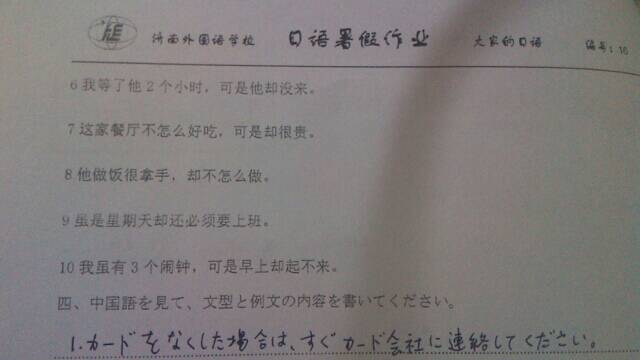 济南外国语学校 日语暑假作业 大家的日语 编号:16
6 我等了他 2 个小时，可是他却没来。
7 这家餐厅不怎么好吃，可是却很贵。
8 他做饭很拿手，却不怎么做。
9 虽是星期天却还必须要上班。
10 我虽有 3 个闹钟，可是早上却起不来。
四、中国語を見て、文型と例文の内容を書いてください。
1.カードをなくした場合は、すぐカード会社に連絡してください。